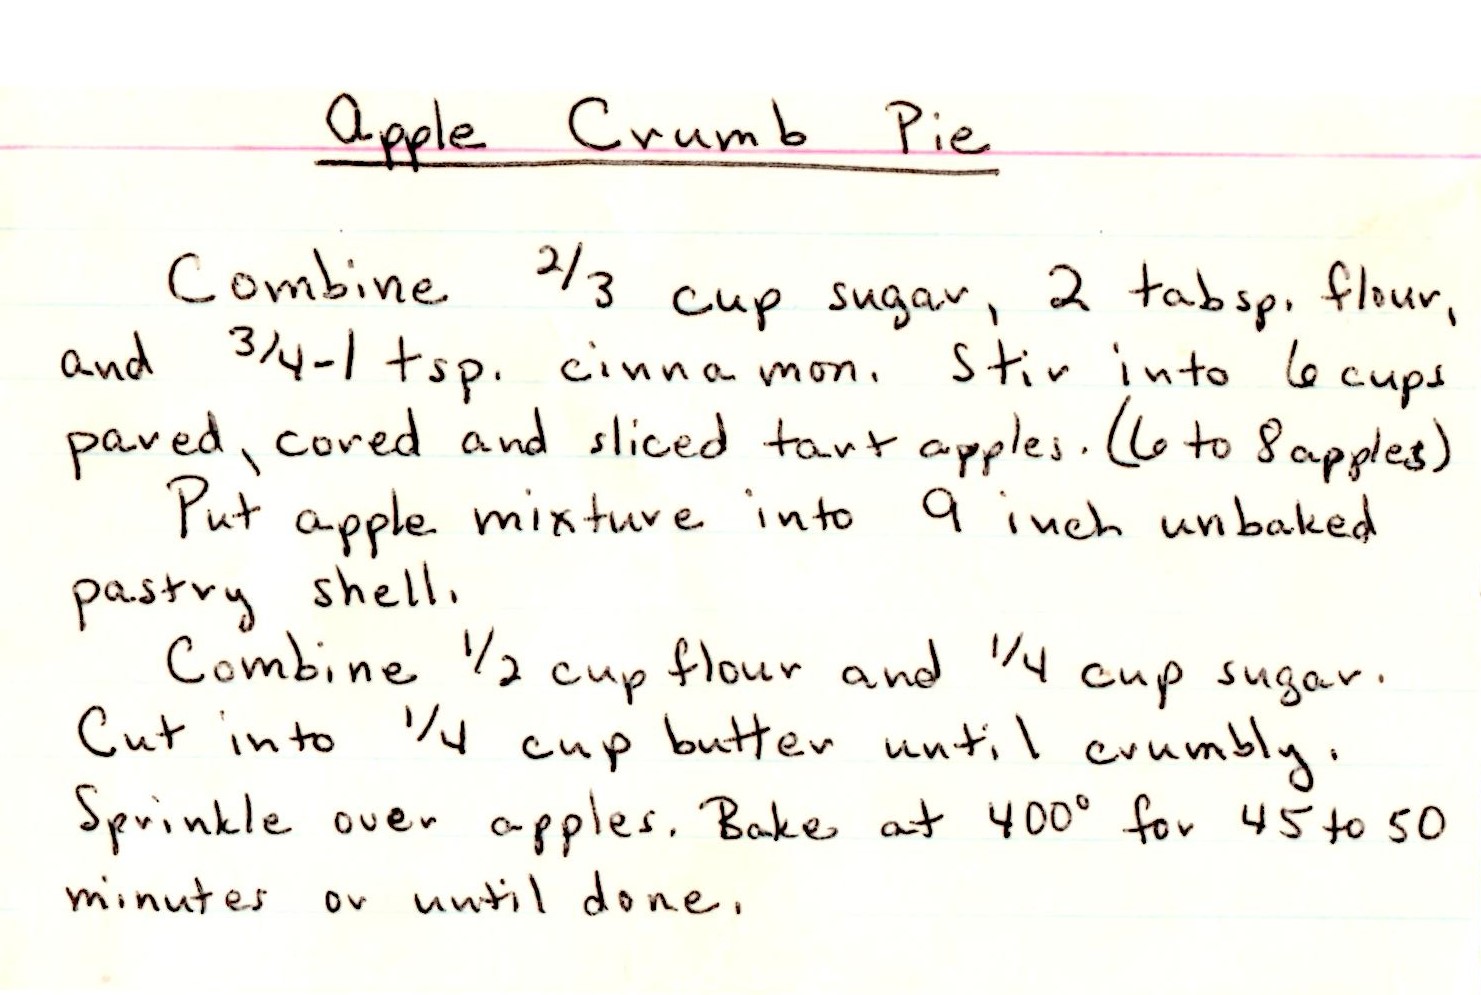 Apple Crumb Pie
Combine 2/3 cup sugar, 2 tabsp. flour,
and 3/4-1 tsp. cinnamon. Stir into 6 cups
pared, cored and sliced tart apples. (6 to 8 apples)
Put apple mixture into 9 inch unbaked
pastry shell.
Combine 1/2 cup flour and 1/4 cup sugar.
Cut into 1/4 cup butter until crumbly.
Sprinkle over apples. Bake at 400° for 45 to 50
minutes or until done.